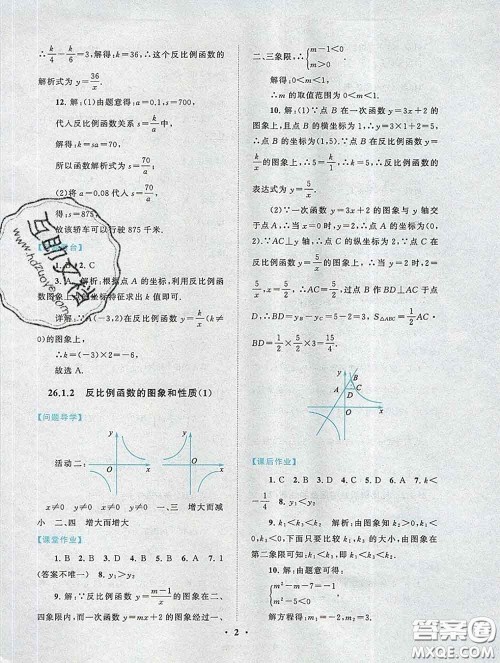 ∴k/4−k/6=3,解得:k=36,∴这个反比例函数的
解析式为 y=36/x.
12. 解:(1)由题意得:a=0.1,s=700,
代入反比例函数关系 s=k/a 中,
解得:k=sa=70,
所以函数解析式为:s=70/a
(2)将 a=0.08 代入 s=70/a,
得:s=875,
故该轿车可行驶 875 千米.
台】
1. B 2. C
3. A 解析:根据点 A 的坐标,利用反比例
函数图象上点的坐标特征求出 k 值.
详解:∵A(-3,2)在反比例函数 y=k/x(k≠0)
的图象上,
∴k=(-3)×2=-6,
故选 A.
26.1.2 反比例函数的图象和性质(1)
【问题导学】
活动二: y O x y O x
x≠0 y≠0 x≠0 y≠0 一、三 增大而减
小 二、四 增大而增大
【课堂作业】
1. B 2. B 3. D 4. A 5. B 6. A 7. 1
(答案不唯一) 8. y₁>y₂
9. 解:∵反比例函数 y=(m−1)/x 的图象在二、四
象限内,而一次函数 y=mx+2 的图象经过一、
二、三象限,∴{m−1<0 m>0.
解得:0<m<1.
∴m 的取值范围为 0<m<1.
10. 解:(1)∵点 B 在一次函数 y=3x+2 的
图象上,且点 B 的横坐标为 1,∴y=3×1+2=5,
∴点 B 的坐标为(1,5).∵点 B 在反比例函数
y=k/x 的图象上,∴5=k/1,∴k=5,∴反比例函数的
表达式为 y=5/x.
(2)∵一次函数 y=3x+2 的图象与 y 轴交
于点 A,∴当 x=0 时,y=2,∴点 A 的坐标为(0,
2).∵AC⊥y 轴,∴点 C 的纵坐标为 2.∵点 C
在反比例函数 y=5/x 的图象上,∴当 y=2 时,2=
5/x,x=5/2,∴AC=5/2,过点 B 作 BD⊥AC 于点 D,
∴BD=y_B−y_C=5−2=3,∴S△ABC=1/2AC·
BD=1/2×5/2×3=15/4.
y B A D C O x
【课后作业】
1. C 2. B 3. D 4. C 5. A 6. A 7. k<
−1/4 8. y₁<y₂
9. k₁<k₃<k₂ 解析:由图象可知 k₁>0,k₂>
0,k₃<0,下面只要比较 k₁,k₂ 的大小,由图象在
10. 解:由题意可得:
{m²−m−7=5, m²−2<0,
解方程得:m₁=4,m₂=−3.
2
互助文稿
www.hdzuoye.com
答案圈
MXQE.COM